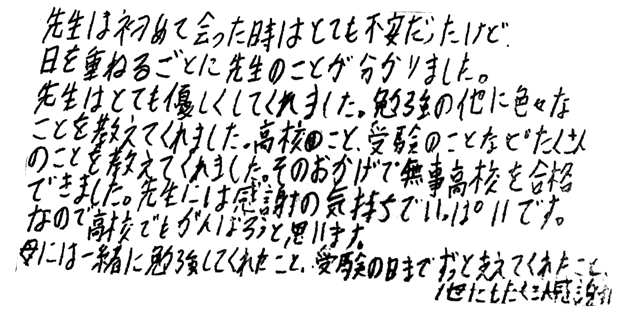 先生は初めて会った時はとても不安だったけど、
日を重ねるごとに先生のことが分かりました。
先生はとても優しくしてくれました。勉強の他に色々な
ことを教えてくれました。高校のこと、受験のことなどたくさん
のことを教えてくれました。そのおかげで無事高校を合格
できました。先生には感謝の気持ちでいっぱいです。
なので高校でもがんばろうと思います。
母には一緒に勉強してくれたこと、受験の日までずっと支えてくれたこと、
他にもたくさん感謝